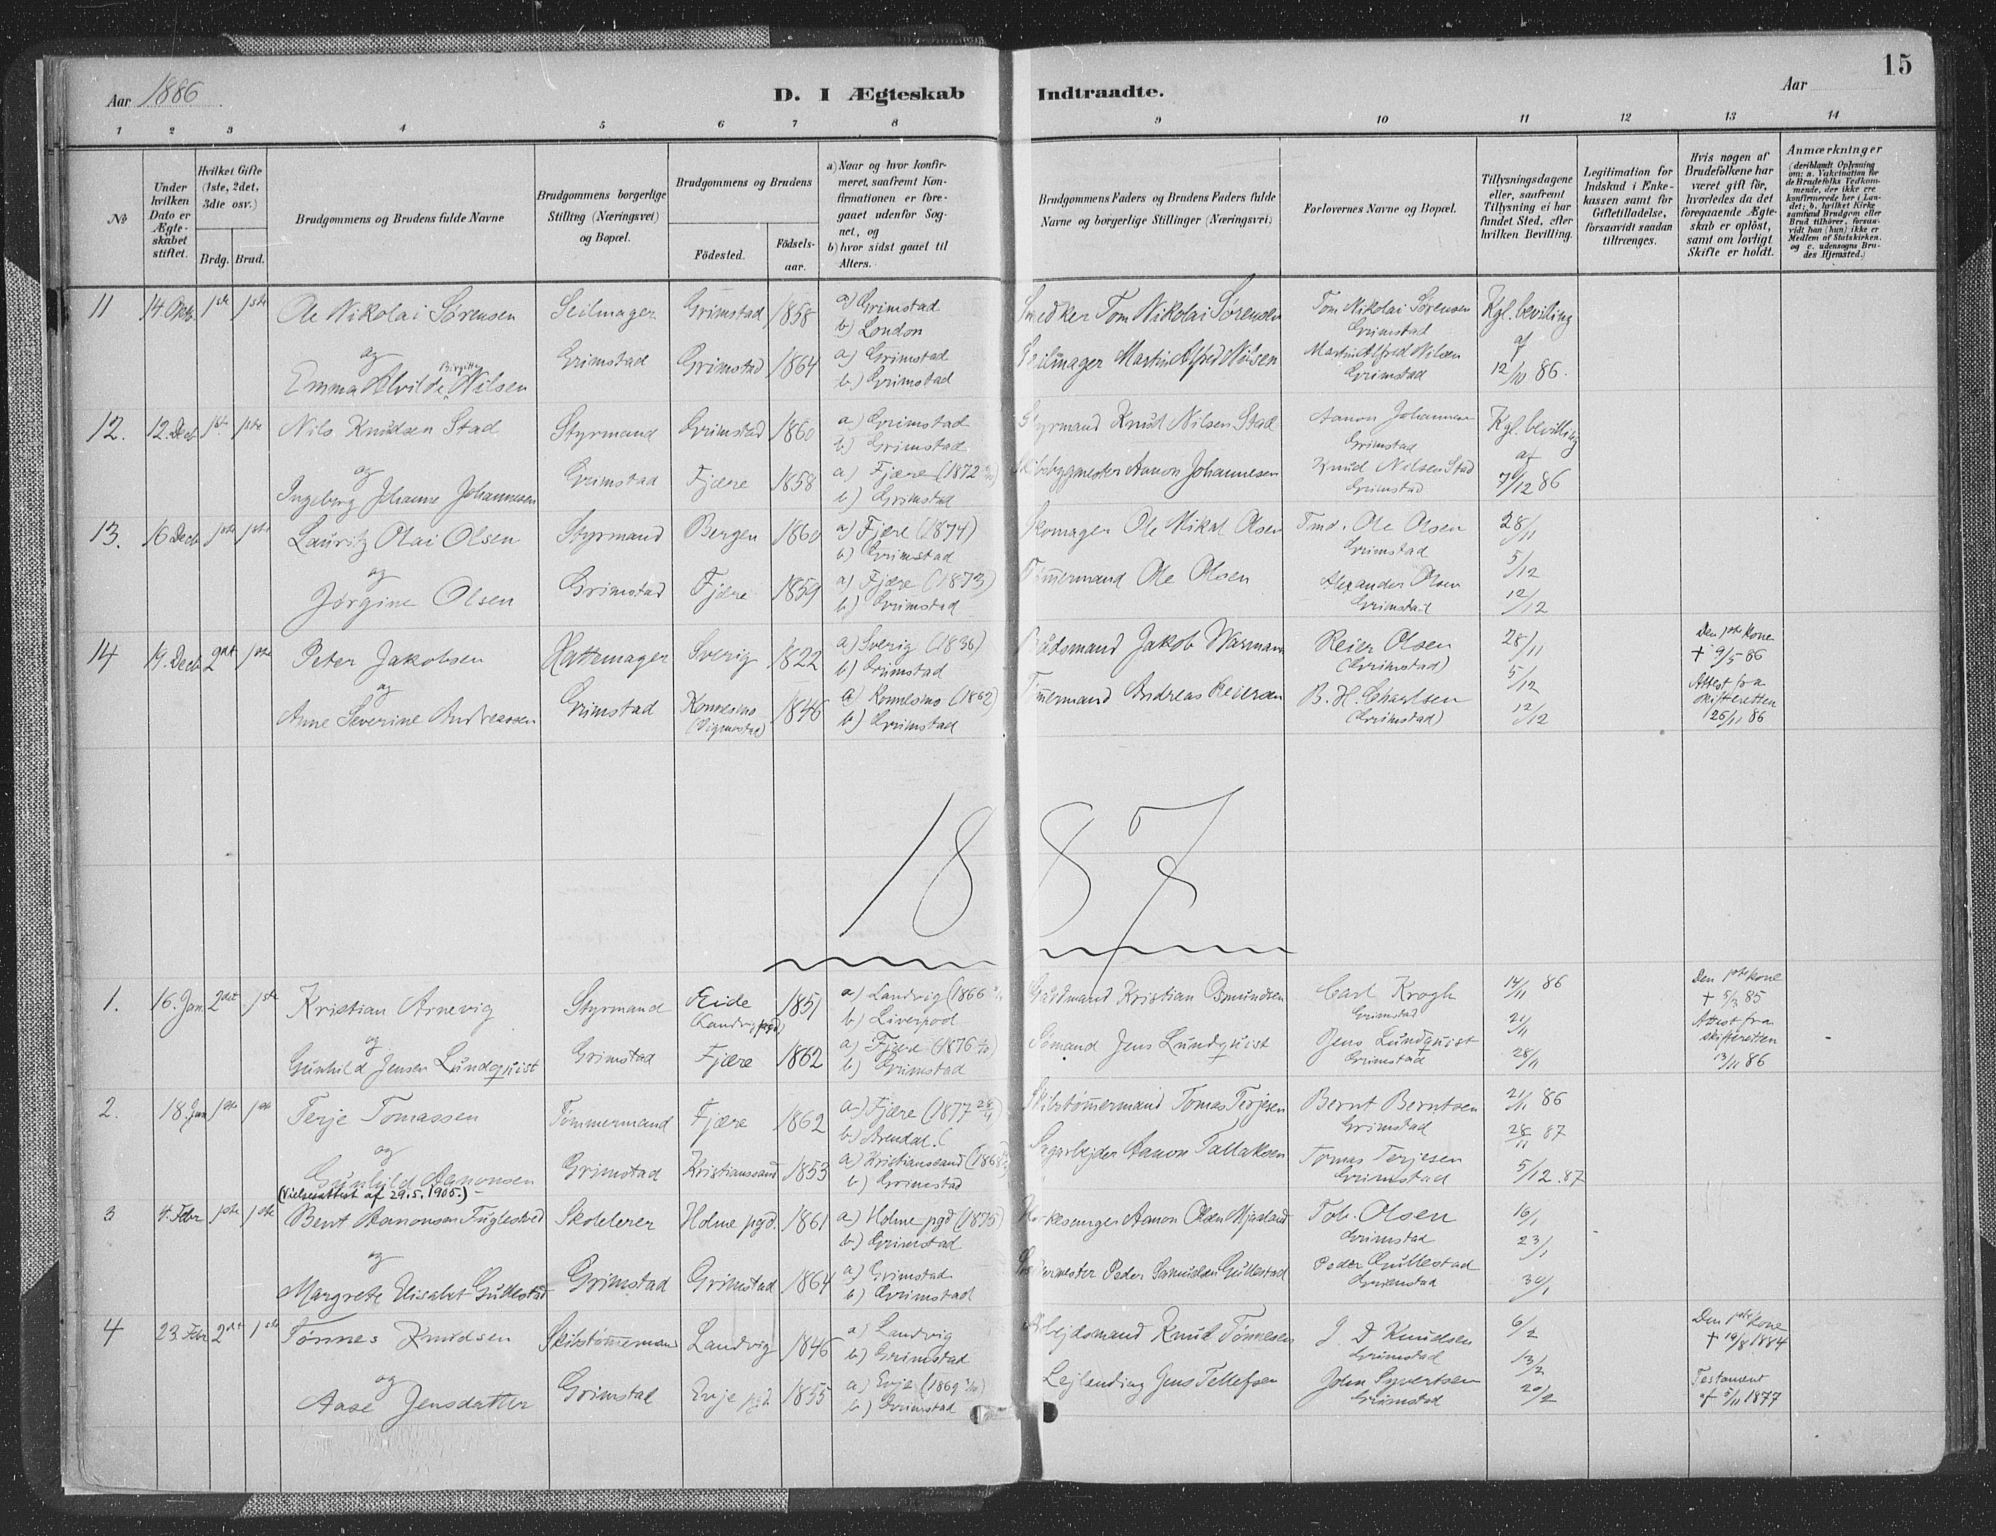 Aar 1886
D. I Ægteskab Indtraadte.
Aar
15
1 2 3 4 5 6 7 8 9 10 11 12 13 14
№
Under hvilken Dato er Ægteskabet stiftet.
Hvilket Gifte (1ste, 2det, 3die osv.)
Brdg. Brud.
Brudgommens og Brudens fulde Navne
Brudgommens borgerlige Stilling (Næringsvei) og Bopæl.
Brudgommens og Brudens
Fødested.
Fødsels-aar.
a) Naar og hvor konfirmeret, saafremt Konfirmationen er foregaaet udenfor Sognet, og
b) hvor sidst gaaet til Alters.
Brudgommens Faders og Brudens Faders fulde Navne og borgerlige Stillinger (Næringsvei)
Forlovernes Navne og Bopæl.
Tillysningsdagene eller, saafremt Tillysning ei har fundet Sted, efter hvilken Bevilling.
Legitimation for Indskud i Enkekassen samt for Giftetilladelse, forsaavidt saadan tiltrænges.
Hvis nogen af Brudefolkene har været gift før, hvorledes da det foregaaende Ægteskab er opløst, samt om lovligt Skifte er holdt.
Anmærkninger
(deriblandt Oplysning om: a. Vakcination for de Brudefolks Vedkommende, der ikke ere konfirmerede her i Landet; b. hvilket Kirkesamfund Brudgom eller Brud tilhører, forsaavidt han (hun) ikke er Medlem af Statskirken, og c. udensogns Brudes Hjemsted.)
11 14. Oktb. 1ste 1ste Ole Nikolai Sørensen Seilmager Grimstad 1858 a) Grimstad b) London Snedker Tom Nikolai Sørensen Tom Nikolai Sørensen Grimstad Kgl. bevilling
og
Emma Alvilde Birgitte Nilsen Grimstad Grimstad 1864 a) Grimstad b) Grimstad Seilmager Martin Alfred Nilsen Martin Alfred Nilsen Grimstad af 12/10 86.
12. 12. Decb 1ste 1ste Nils Knudsen Stad Styrmand Grimstad 1860 a) Grimstad b) Grimstad Styrmand Knud Nilsen Stad Aanon Johannesen Grimstad Kgl. bevilling
og
Ingeborg Johanne Johannesen Grimstad Fjære 1858 a) Fjære (1872 b) Grimstad Skibsbygmester Aanon Johannesen Knud Nilsen Stad Grimstad af 7/12 86
13. 16 Decb 1ste 1ste Lauritz Olai Olsen Styrmand Bergen 1860 a) Fjære (1874) b) Grimstad Skomager Ole Mikal Olsen Tmd. Ole Olsen Grimstad 28/11
og
Jørgine Olsen Grimstad Fjære 1859 a) Fjære (1873) b) Grimstad Tømmermand Ole Olsen Alexander Olsen Grimstad 5/12 12/12
14 19. Decb 2det 1ste Peter Jakobsen Hattemager Sverig 1822 a) Sverig (1836) b) Grimstad Baadsmand Jakob Warman Reier Olsen (Grimstad) 28/11 Den 1ste kone † 9/5 86
og
Anne Severine Andreassen Grimstad Konnesmo (Vigmostad) 1846 a) Konnesmo (1862) b) Grimstad Tømmermand Andreas Reiersen B. H. Charlsen (Grimstad) 5/12 12/12 Attest fra skifteretten 26/11 86
1887
1. 16. Jan 2det 1ste Kristian Arnevig Styrmand Eide (Landvig pgd) 1851 a) Landvig (1866 b) Liverpool Gaardmand Kristian Osmundsen Carl Krogh Grimstad 14/11 86 Den 1ste kone † 5/3 85
og
Gunhild Jensen Lundquist Grimstad Fjære 1862 a) Fjære (1876 b) Grimstad Sømand Jens Lundquist Jens Lundquist Grimstad 21/11 28/11 Attest fra skifteretten 13/11 86
2. 18. Jan 1ste 1ste Terje Tomassen Tømmermand Fjære 1862 a) Fjære (1877 28/11 b) Arendal ( Skibstømmermand Tomas Terjesen Bernt Berntsen Grimstad 21/11 86
og
Gunhild Aanonsen Grimstad Kristianssand 1853 a) Kristianssand (1868 b) Grimstad Sagarbejder Aanon Tallaksen Tomas Terjesen Grimstad 28/11 87 5/12.87
(Vielsesattest af 29.5.1905.)
3 4. Febr 1ste 1ste Bent Aanonsen Fuglestvedt Skolelærer Holme pgd. 1861 a) Holme pgd (1875) b) Grimstad Kirkesanger Aanon Olsen Mjaaland Tob. Olsen Grimstad 16/1
og
Margrete Elisabet Gullestad Grimstad Grimstad 1864 a) Grimstad b) Grimstad Peder Samuelsen Gullestad Peder Gullestad Grimstad 23/1 30/1
4 23 Febr 2det 1ste Tønnes Knudsen Skibstømmermand Landvig 1846 a) Landvig b) Grimstad Arbejdsmand Knud Tønnesen J. D Knudsen Grimstad 6/2 Den 1ste kone † 19/8 1884
og
Aase Jensdatter Grimstad Evje pgd 1855 a) Evje (1869 b) Grimstad Lejlænding Jens Tellefsen John Syvertsen Grimstad 13/2 20/2 Testament af 5/11 1877